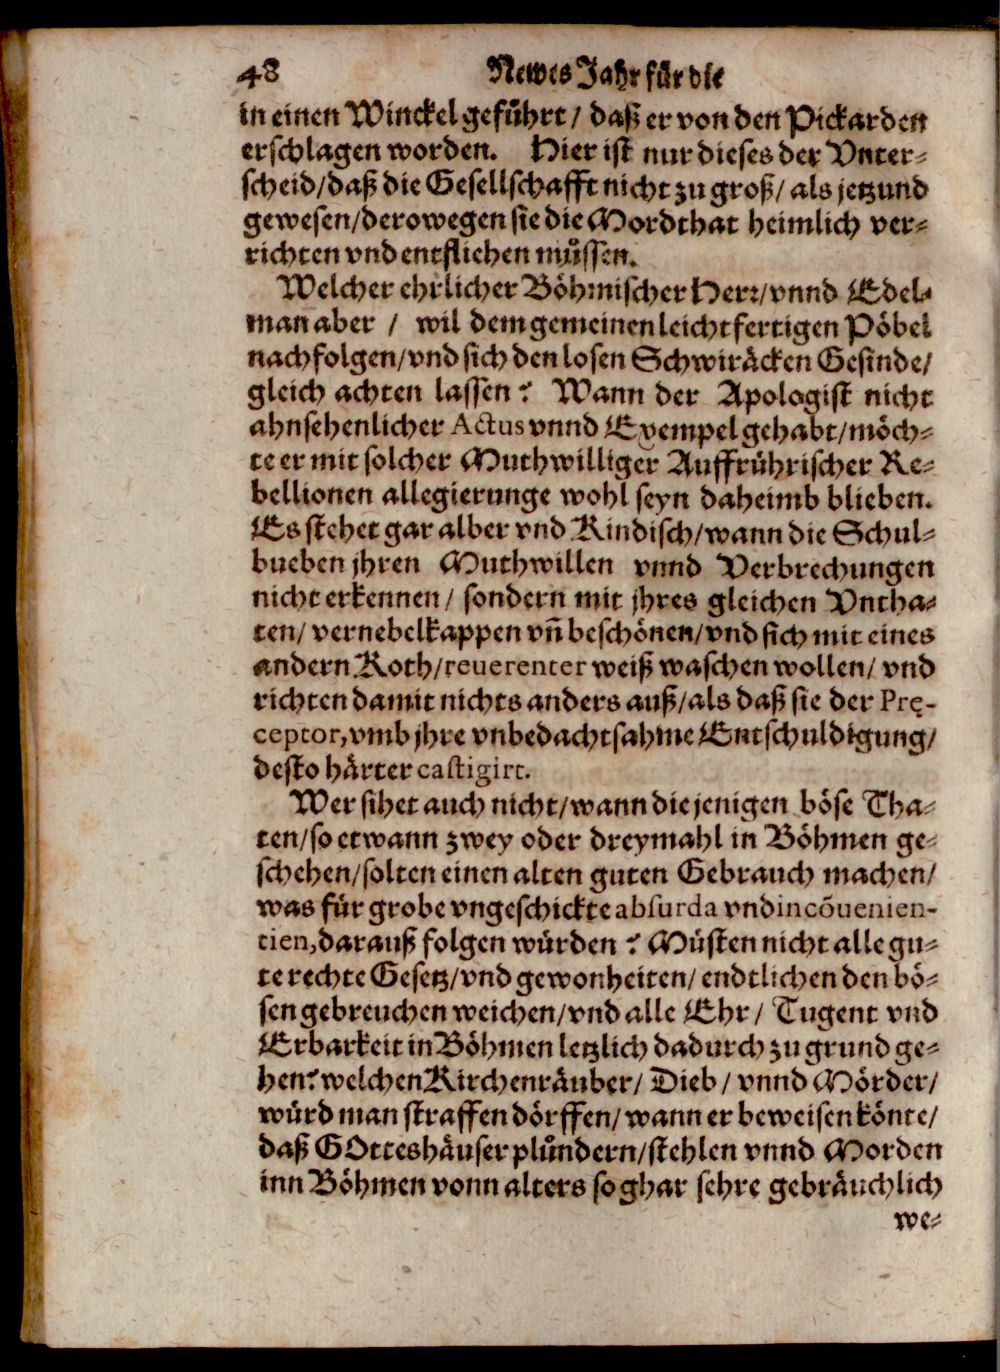 48 Newes Jahr für die
in einen Winckel geführt / daß er von den Pickarden
erschlagen worden. Hier ist nur dieses der Vnter-
scheid/daß die Gesellschafft nicht zu groß/ als jetzund
gewesen/derowegen sie die Mordthat heimlich ver-
richten vnd entfliehen müssen.
Welcher ehrlicher Böhmischer Herr/vnnd Edel-
man aber / wil dem gemeinen leichtfertigen Pöbel
nachfolgen/vnd sich den losen Schwiräcken Gesinde/
gleich achten lassen? Wann der Apologist nicht
ahnsehenlicher Actus vnnd Exempel gehabt/möch-
te er mit solcher Muthwilliger Auffrührischer Re-
bellionen allegierunge wohl seyn daheimb blieben.
Es stehet gar alber vnd Kindisch/wann die Schul-
bueben jhren Muthwillen vnnd Verbrechungen
nicht erkennen / sondern mit jhres gleichen Vntha-
ten/ vernebelkappen vñ beschönen/vnd sich mit eines
andern Koth/reuerenter weiß waschen wollen/ vnd
richten damit nichts anders auß/als daß sie der Prę-
ceptor,vmb jhre vnbedachtsahme Entschuldigung/
desto härter castigirt.
Wer sihet auch nicht/wann die jenigen böse Tha-
ten/so etwann zwey oder dreymahl in Böhmen ge-
schehen/solten einen alten guten Gebrauch machen/
was für grobe vngeschickte absurda vnd incõuenien-
tien,darauß folgen würden? Müsten nicht alle gu-
te rechte Gesetz/vnd gewonheiten/ endtlichen den bö-
sen gebreuchen weichen/vnd alle Ehr/ Tugent vnd
Erbarkeit in Böhmen letzlich dadurch zu grund ge-
hen? welchen Kirchenräuber/ Dieb / vnnd Mörder/
würd man straffen dörffen/ wann er beweisen könte/
daß GOtteshäuser plündern/stehlen vnnd Morden
inn Böhmen vonn alters so ghar sehre gebräuchlich
we-